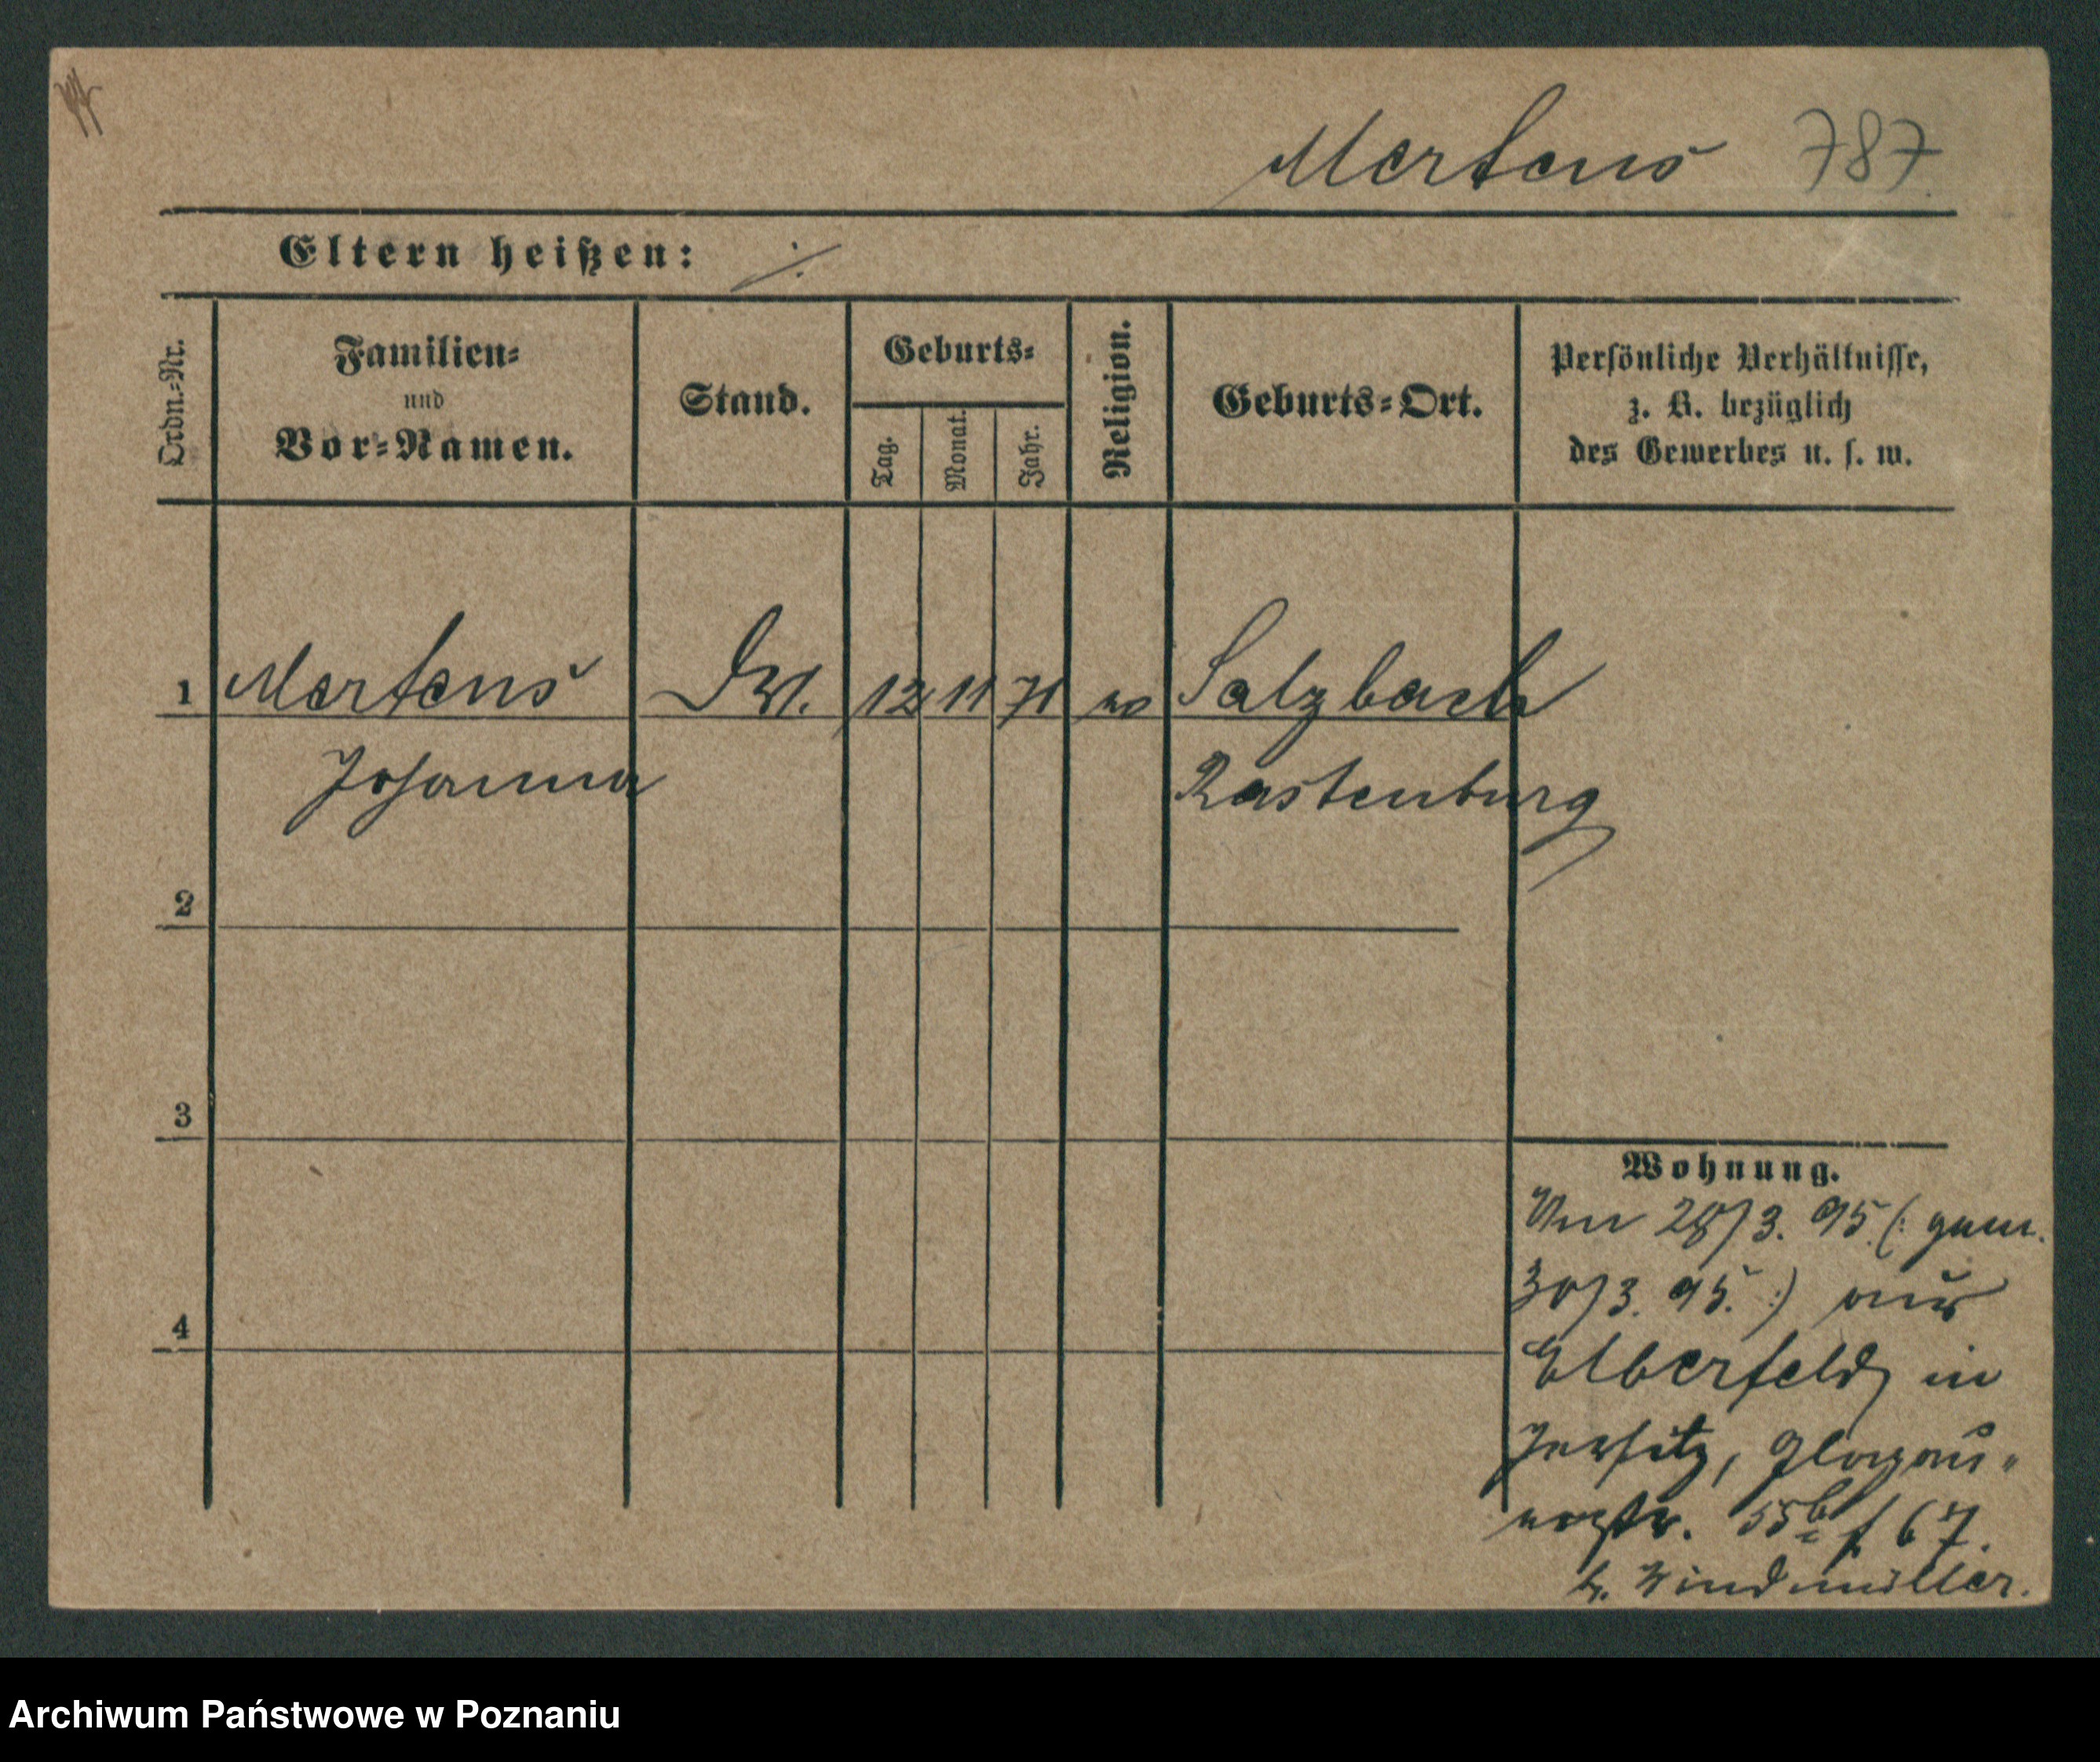 Mertens 787
Eltern heißen: ./.
Ordn.-Nr.
Familien-
und
Vor-Namen.
Stand.
Geburts-
Tag.
Monat.
Jahr.
Religion.
Geburts-Ort.
Persönliche Verhältnisse,
z. B. bezüglich
des Gewerbes u. s. w.
1 Mertens 12 11 71 Salzbach
Johanna Rastenburg
2
3
4
Wohnung.
Am 28/3. 95 (: gem.
30/3. 95. :) aus
Elberfeld in
Jersitz, Glogau-
erstr. 55b f 67.
b. Windmüller.
Archiwum Państwowe w Poznaniu